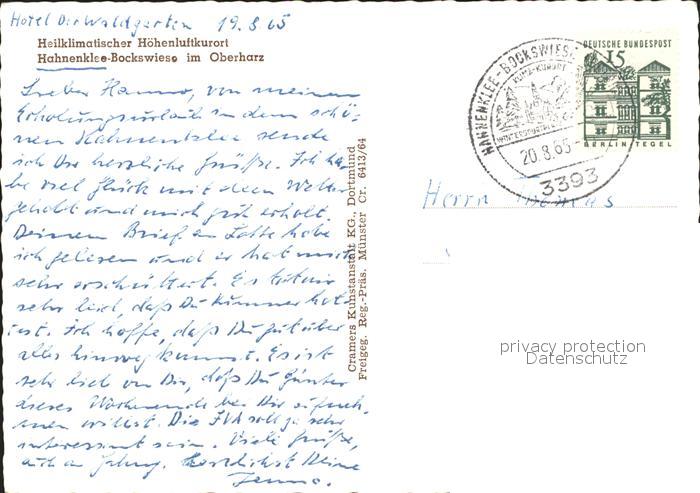 Hotel Der Waldgarten 19.8.65
Heilklimatischer Höhenluftkurort
Hahnenklee-Bockswiese im Oberharz
Lieber Hanno, von meinem
Erholungsurlaub in dem schö-
nen Hahnenklee sende
ich Dir herzliche Grüße. Ich ha-
be viel Glück mit dem Wetter
gehabt und mich gut erholt.
Deinen Brief an Lotte habe
ich gelesen und er hat mich
sehr erschüttert. Es tut mir
sehr leid, daß Du Kummer hat-
test. Ich hoffe, daß Du gut über
alles hinweg kommst. Es ist
sehr lieb von Dir, daß Du Günter
dieses Wochenende bei Dir aufneh-
men willst. Die IVA soll ja sehr
interessant sein. Viele Grüße,
auch an Herzlichst Deine
Cramers Kunstanstalt KG., Dortmund
Freigeg. Reg.-Präs. Münster Cr. 6413/64
HAHNENKLEE-BOCKSWIESE
KLIMA-KURORT
WINTERSPORT
20.8.65
3393
DEUTSCHE BUNDESPOST
15
BERLIN TEGEL
Herrn Thomas
privacy protection
Datenschutz